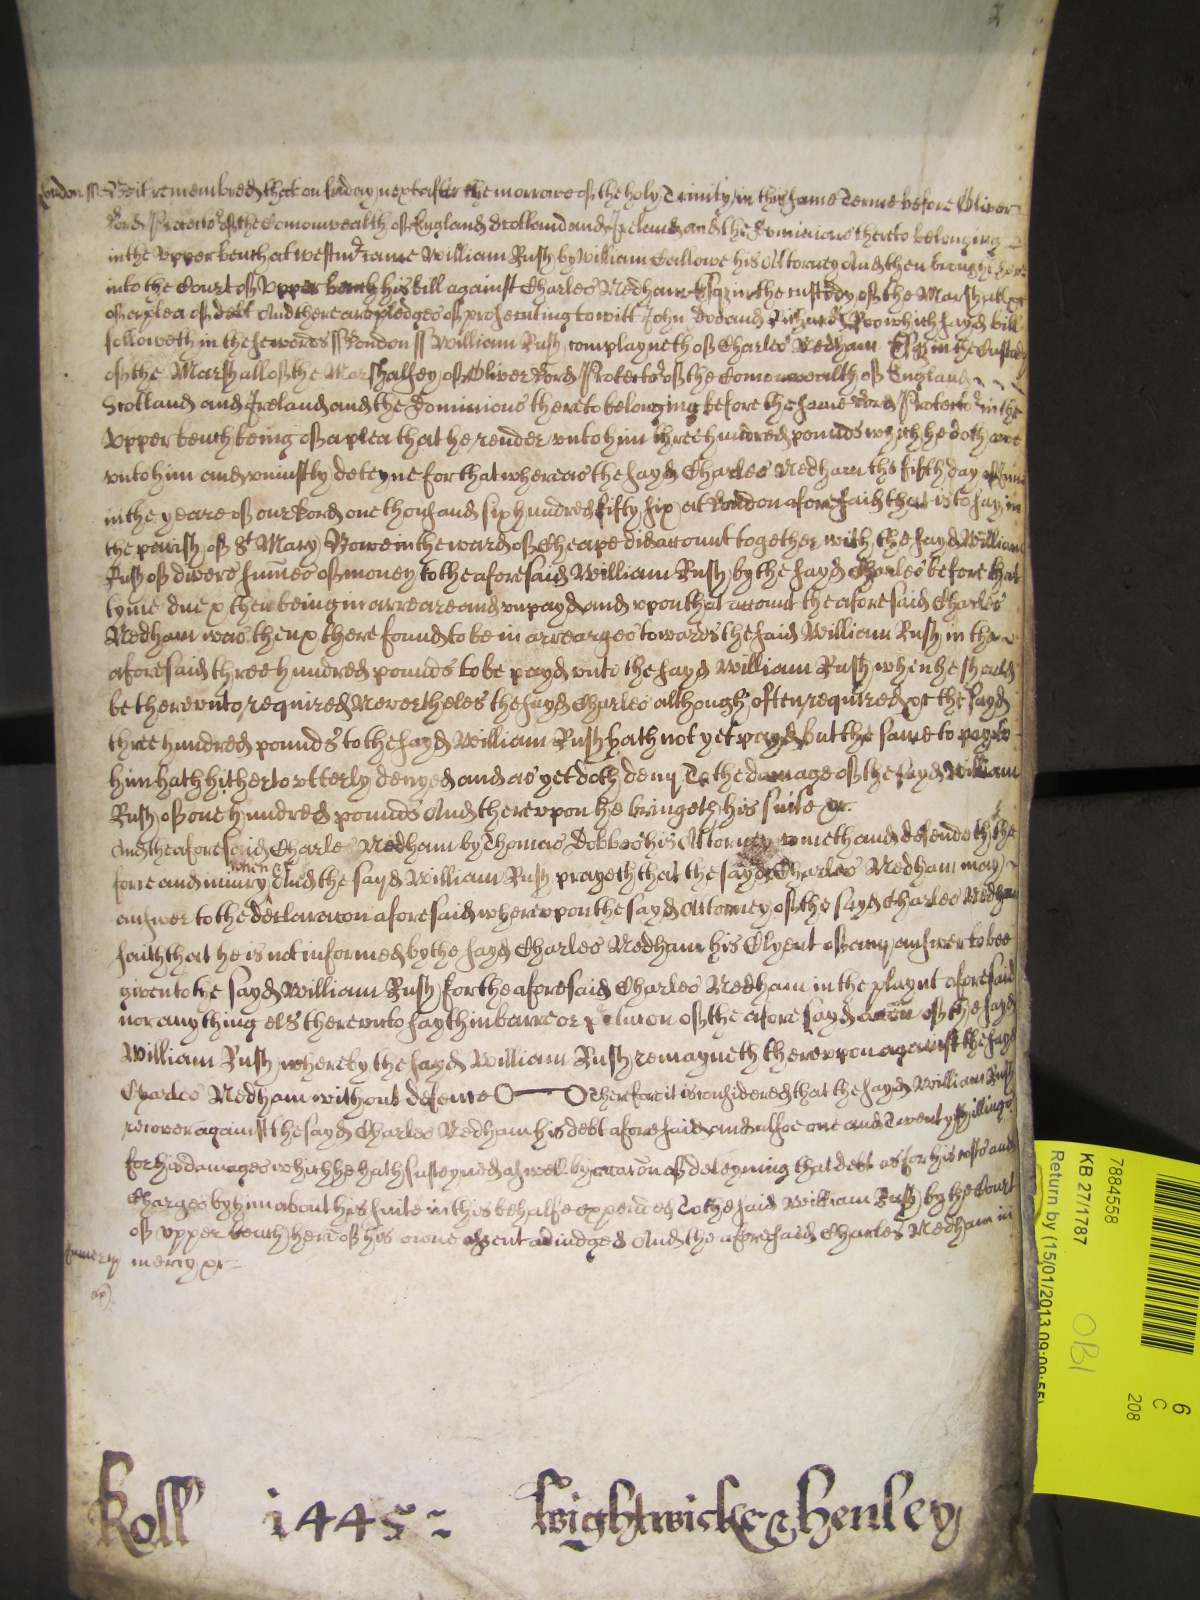 London ss Be it remembred that on friday next after the morrowe of the holy Trinity in this same Terme before Oliver
Lord Protector of the Comonwealth of England Scotland and Ireland and the Dominions thereto belonging
in the Upper bench at Westmr came William Rush by William Callowe his Attorney And then brought here
into the Court of Upper bench his bill against Charles Nedham Esqr in the custody of the Marshall &c
of a plea of debt And there are pledges of prosecuting to witt John Doe and Richard Roo which sayd bill
followeth in these words ss London ss William Rush complayneth of Charles Nedham Esqr in the Custody
of the Marshall of the Marshalsey of Oliver Lord Protector of the Comonwealth of England
Scotland and Ireland and the Dominions thereto belonging before the same Lord Protector in the
Upper bench being of a plea that he render unto him three hundred pounds which he doth owe
unto him and uniustly deteyne for that whereas the sayd Charles Nedham the fifth day of
in the yeare of our Lord one thousand six hundred fifty six at London aforesaid that is to say in
the parish of St Mary Bowe in the ward of Cheape did account together with the sayd William
Rush of divers summes of money to the aforesaid William Rush by the sayd Charles before that
tyme due & then being in arreare and unpayd and upon that account the aforesaid Charles
Nedham was then & there found to be in arrearges towards the said William Rush in the
aforesaid three hundred pounds to be payd unto the sayd William Rush when he should
be thereunto required Nevertheles the sayd Charles although often required &c the sayd
three hundred pounds to the sayd William Rush hath not yet payd but the same to pay to
him hath hitherto utterly denyed and as yet doth deny To the damage of the sayd William
Rush of one hundred pounds And thereupon he bringeth his suite &c.
And the aforesaid Charles Nedham by Thomas Dobbs his Attorney cometh and defendeth the
force and iniury when &c And the sayd William Rush prayeth that the sayd Charles Nedham may
answer to the declaracon aforesaid whereupon the sayd Attorney of the sayd Charles Nedham
saith that he is not informed by the sayd Charles Nedham his Clyent of any answer to bee
given to the sayd William Rush for the aforesaid Charles Nedham in the playnt aforesaid
nor any thing els thereunto sayth in barre or of the aforesayd accon of the sayd
William Rush whereby the sayd William Rush remayneth thereupon against the sayd
Charles Nedham without defence Therefore it is considered that the sayd William Rush
recover against the sayd Charles Nedham his debt aforesaid and alsoe one and Twenty shillings
for his damages which he hath susteyned aswell by occacon of deteyning that debt as for his costs and
Charges by him about his suite in this behalfe expended To the said William Rush by the Court
of Upper bench here of his owne assent adiudged And the aforesaid Charles Nedham in
In mercy mercy &c
Roll 1445 Wightwicke & Henley
7884558
KB 27/1787
Return by (15/01/2013 09:09:55)
OBI
6
C
208